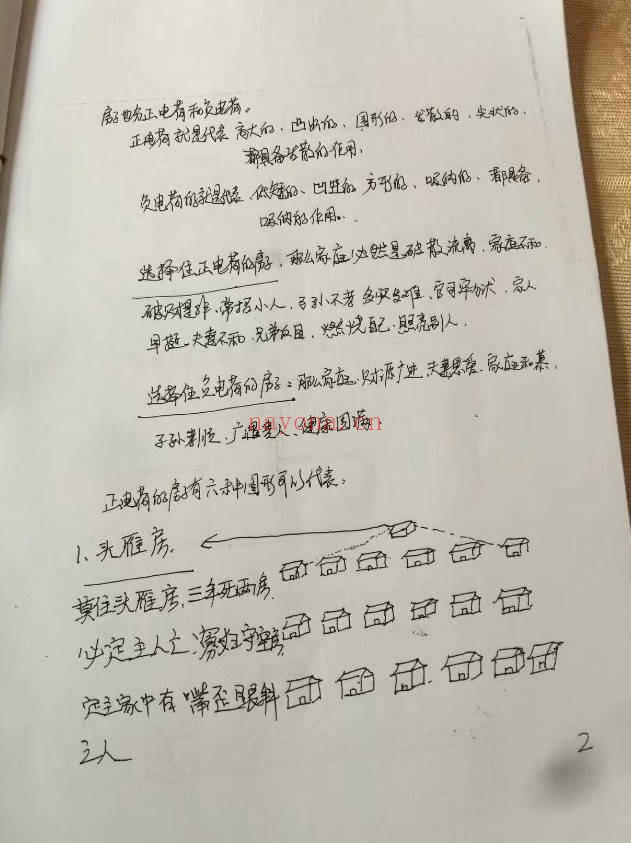 房地分正电荷和负电荷。
正电荷就是代表高大的、凸出的、圆形的、发散的、尖状的、
都具备发散的作用。
负电荷的就是代表、低矮的、凹进的、方形的、吸纳的、都具备、
吸纳的作用。
选择住正电荷的房子，那么家庭必然是破散流离，家庭不和、
破财损丁，常招小人，子孙不孝多灾多难，官司牢狱、家人
早逝、夫妻不和、兄弟反目、燃烧自己、照亮别人。
选择住负电荷的房子：那么家庭、财源广进、夫妻恩爱、家庭和慕、
子孙孝顺、广遇贵人、健康圆满、
nayona.cn
正电荷的房子有六种图形可以代表：
1、头雁房、
莫住头雁房，三年死两房
必定主人亡、寡妇守空房
定主家中有嘴歪眼斜
之人
2